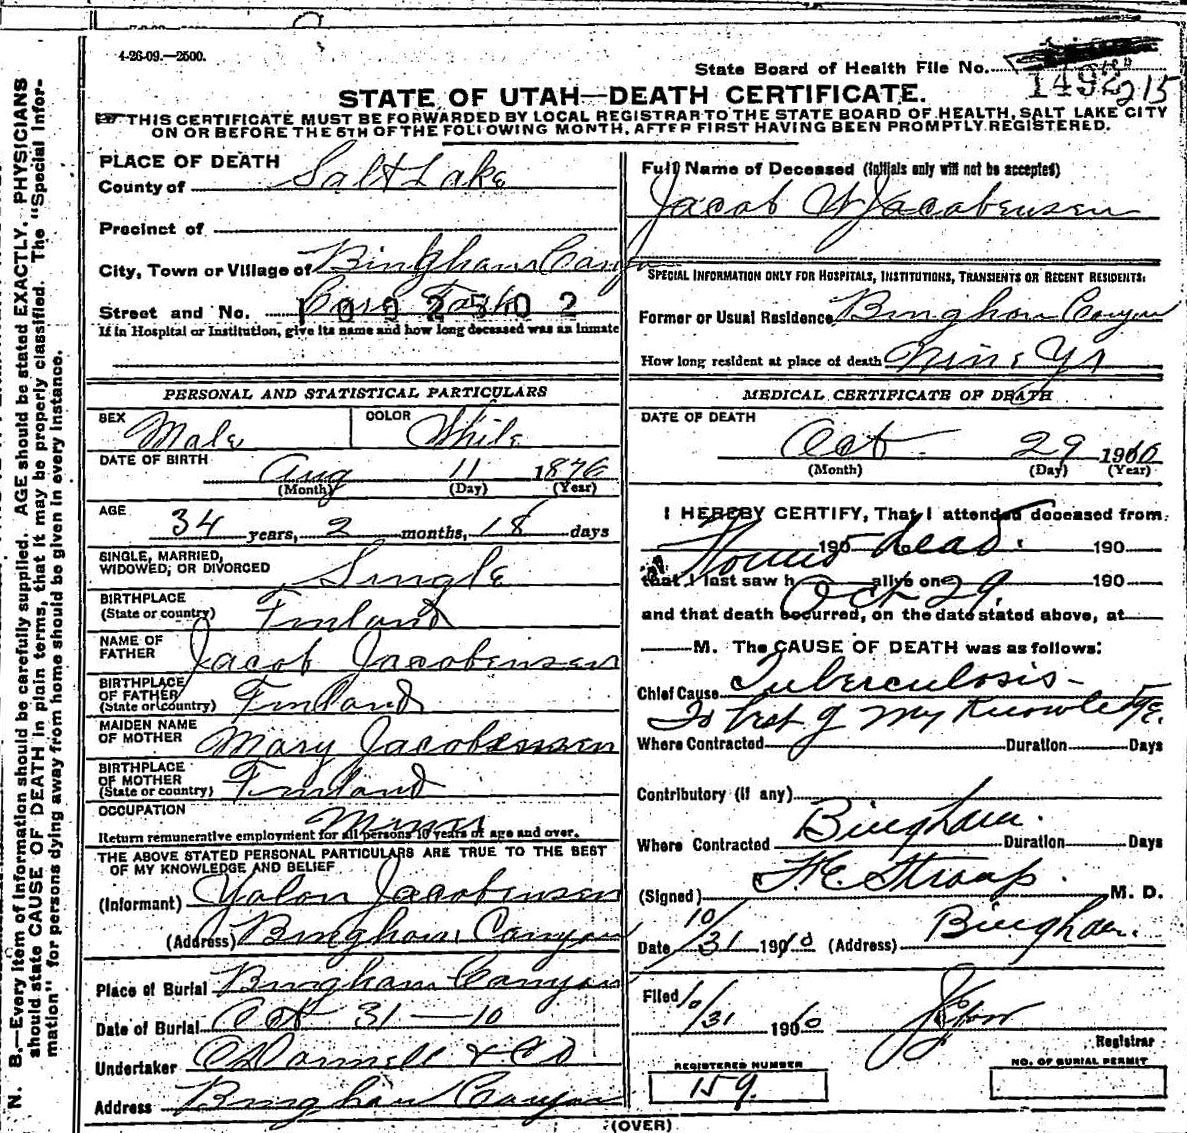 4-26-09.—2500.
State Board of Health File No.
1492 215
STATE OF UTAH—DEATH CERTIFICATE.
THIS CERTIFICATE MUST BE FORWARDED BY LOCAL REGISTRAR TO THE STATE BOARD OF HEALTH, SALT LAKE CITY
ON OR BEFORE THE 5TH OF THE FOLLOWING MONTH, AFTER FIRST HAVING BEEN PROMPTLY REGISTERED.
N. B.—Every item of information should be carefully supplied. AGE should be stated EXACTLY. PHYSICIANS
should state CAUSE OF DEATH in plain terms, that it may be properly classified. The "Special Infor-
mation" for persons dying away from home should be given in every instance.
PLACE OF DEATH
County of Salt Lake
Precinct of
City, Town or Village of Bingham Canyon
Street and No. Carr Fork
1092502
If in Hospital or Institution, give its name and how long deceased was an inmate
PERSONAL AND STATISTICAL PARTICULARS
SEX Male COLOR White
DATE OF BIRTH Aug 11 1876
(Month) (Day) (Year)
AGE 34 years, 2 months, 18 days
SINGLE, MARRIED,
WIDOWED, OR DIVORCED Single
BIRTHPLACE
(State or country) Finland
NAME OF
FATHER Jacob Jacobinsen
BIRTHPLACE
OF FATHER
(State or country) Finland
MAIDEN NAME
OF MOTHER Mary Jacobinsen
BIRTHPLACE
OF MOTHER
(State or country) Finland
OCCUPATION Miner
Return remunerative employment for all persons 10 years of age and over.
THE ABOVE STATED PERSONAL PARTICULARS ARE TRUE TO THE BEST
OF MY KNOWLEDGE AND BELIEF
(Informant) Jacobinsen
(Address) Bingham Canyon
Place of Burial Bingham Canyon
Date of Burial Oct 31—10
Undertaker O'Donnell & Co
Address Bingham Canyon
Full Name of Deceased (Initials only will not be accepted)
Jacob W Jacobensen
SPECIAL INFORMATION ONLY FOR HOSPITALS, INSTITUTIONS, TRANSIENTS OR RECENT RESIDENTS:
Former or Usual Residence Bingham Canyon
How long resident at place of death Nine Yrs
MEDICAL CERTIFICATE OF DEATH
DATE OF DEATH
Oct 29 1910
(Month) (Day) (Year)
I HEREBY CERTIFY, That I attended deceased from
Found dead. 190 190
that I last saw h alive on Oct 29. 190
and that death occurred, on the date stated above, at
M. The CAUSE OF DEATH was as follows:
Chief Cause Tuberculosis—
To best of my Knowledge.
Where Contracted Duration Days
Contributory (if any)
Bingham.
Where Contracted Duration Days
(Signed) F.E. Straup. M. D.
Date 10/31 1910 (Address) Bingham.
Filed 10/31 1910
Registrar
REGISTERED NUMBER
159.
NO. OF BURIAL PERMIT
(OVER)